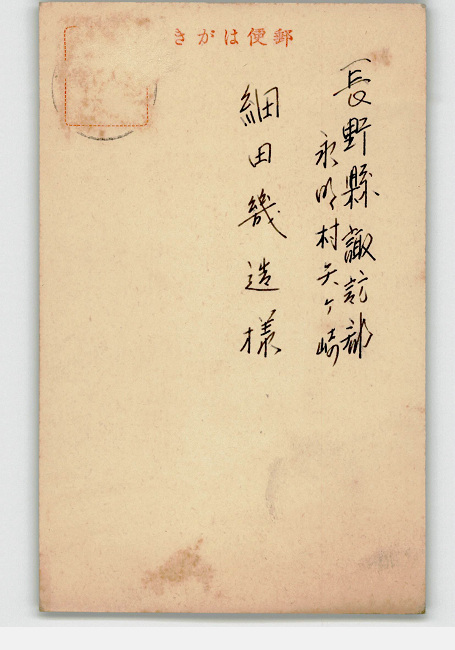 きがは便郵
長野縣諏訪郡
永明村矢ヶ崎
細田幾造様